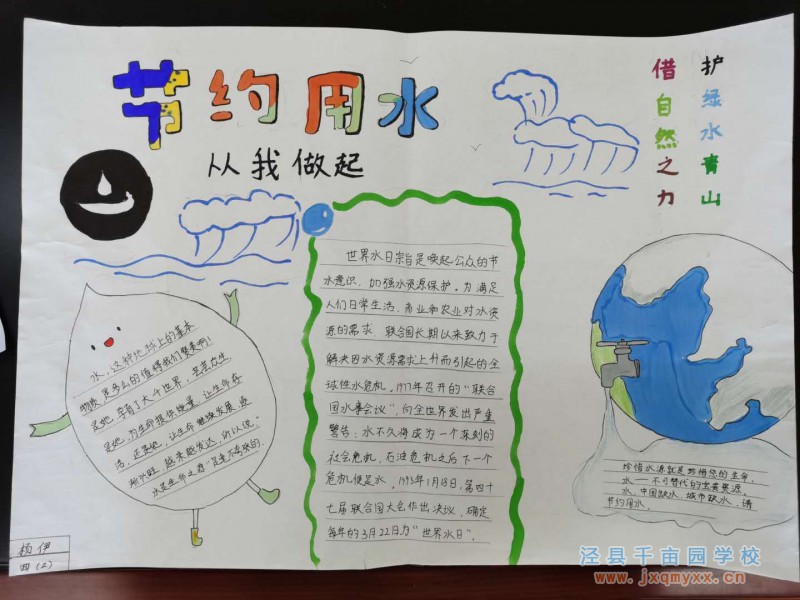 节约用水
从我做起
护绿水青山
借自然之力
水,这种地球上的基本
物质,是多么的值得我们赞美啊!
是她,孕育了大千世界,芸芸众生
是她,为生命提供能量,让生命存
活,还是她,让生命继续发展,逐
渐兴旺,越来越发达,所以说:"
水是生命之源"是毫不夸张的。
世界水日宗旨是唤起公众的节
水意识,加强水资源保护。为满足
人们日常生活、商业和农业对水资
源的需求,联合国长期以来致力于
解决因水资源需求上升而引起的全
球性水危机。1977年召开的"联合
国水事会议",向全世界发出严重
警告:水不久将成为一个深刻的
社会危机,石油危机之后下一个
危机便是水。1993年1月18日,第四十
七届联合国大会作出决议,确定
每年的3月22日为"世界水日"。
珍惜水源就是珍惜您的生命,
水——不可替代的宝贵资源。
水,中国缺水,城市缺水,请
节约用水。
杨伊
四(2)
泾县千亩园学校
www.jxqmyxx.cn